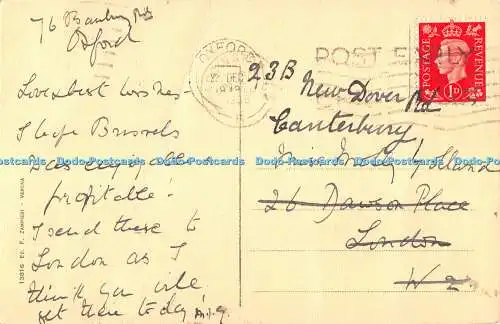 76 Banbury Rd
Oxford
Love & best wishes –
I hope Brussels
was enjoyable &
profitable!
I send these to
London as I
think you will
get there to-day!
13816 ED. F. ZAMPIERI - VERONA
OXFORD
DEC
POST EARLY
POSTAGE
REVENUE
1D
23B New Dover Rd
Canterbury
Miss Holland
26 Dawson Place
London
W 2
Dodo-Postcards Dodo-Postcards Dodo-Postcards Dodo-Postcards